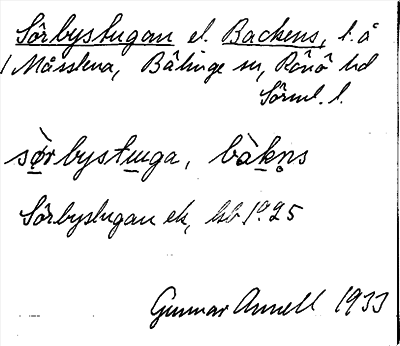 Sörbystugan el. Backens, l. å
1 Måsstena, Bälinge sn, Rönö hd
Söml. l.
sö̀rbystuuga, bàkn̥s
Sörbystugan ek, hb 1º25
Gunnar Annell 1933